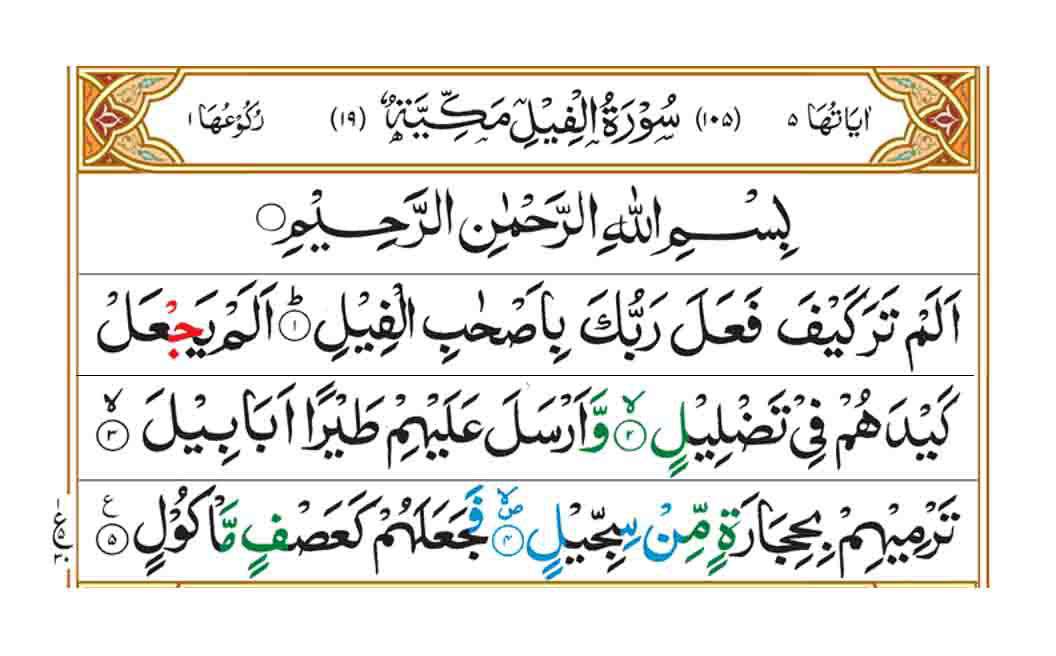 اٰيَاتُهَا ٥ (١٠٥) سُوْرَةُ الْفِيْلِ مَكِّيَّةٌ (١٩) رُكُوْعُهَا ١
بِسْمِ اللّٰهِ الرَّحْمٰنِ الرَّحِيْمِ
اَلَمْ تَرَ كَيْفَ فَعَلَ رَبُّكَ بِاَصْحٰبِ الْفِيْلِ ؕ ١ اَلَمْ يَجْعَلْ
كَيْدَهُمْ فِيْ تَضْلِيْلٍ ۙ ٢ وَّاَرْسَلَ عَلَيْهِمْ طَيْرًا اَبَابِيْلَ ۙ ٣
تَرْمِيْهِمْ بِحِجَارَةٍ مِّنْ سِجِّيْلٍ ۙ ص ٤ فَجَعَلَهُمْ كَعَصْفٍ مَّاْكُوْلٍ ع ٥